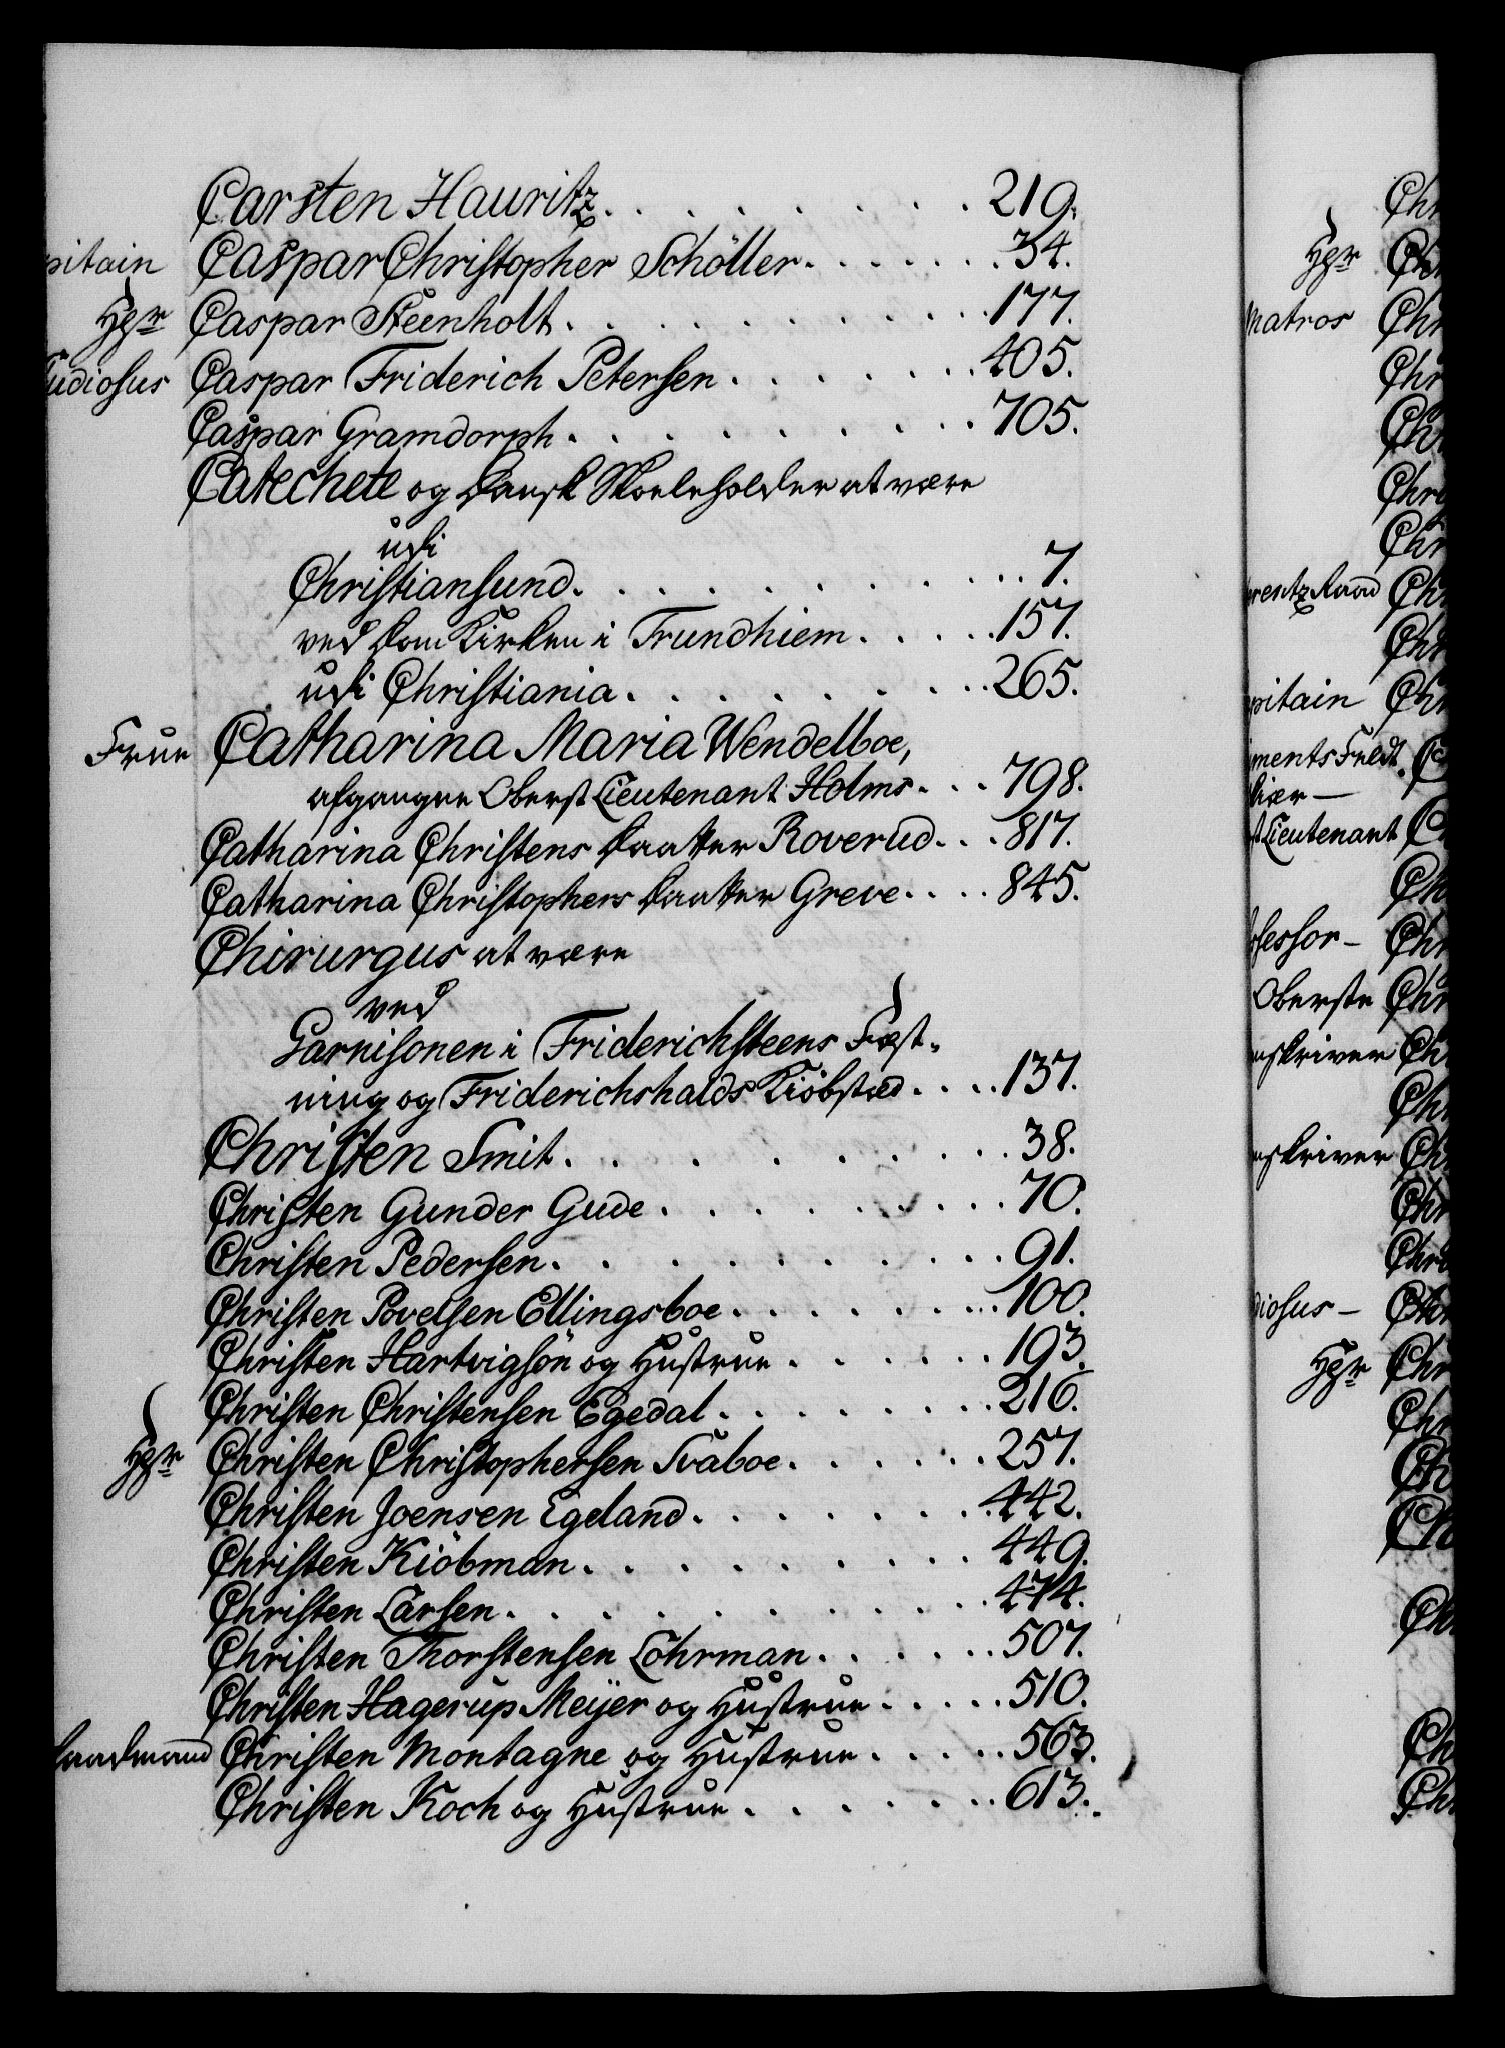 Carsten Hauritz . . . . . . . . . 219.
pitain Caspar Christopher Schöller . . . . . . . 34.
Hgr Caspar Steenholt . . . . . . . . . . . 177.
tudiosus Caspar Friderich Petersen . . . . . . . 405.
Caspar Gramdorph . . . . . . . . . . 705.
Catechete og Dansk Skoleholder at være
udi
Christiansund . . . . . . . . . . . 7.
ved Dom Kirken i Trundhiem . . . . . 157.
udi Christiania . . . . . . . . . 265.
Frue Catharina Maria Wendelboe,
afgangne Oberst Lieutenant Holms . . . 798.
Catharina Christens Daatter Roverud . . . 817.
Catharina Christophers Daatter Greve . . . . 845.
Chirurgus at være
ved
Garnisonen i Friderichsteens Fæst-
ning og Friderichshalds Kiöbstæd . . . . 137.
Christen Smit . . . . . . . . . . . 38.
Christen Gunder Gude . . . . . . . . . 70.
Christen Pedersen . . . . . . . . . . . 91.
Christen Povelsen Ellingsboe . . . . . . . . 100.
Christen Hartvigsön og Hustrue . . . . . . 193.
Christen Christensen Egedal . . . . . . . . 216.
Hgr Christen Christophersen Svaboe . . . . . . 257.
Christen Joensen Egeland . . . . . . . . 442.
Christen Kiöbman . . . . . . . . . . 449.
Christen Larsen . . . . . . . . . . . 474.
Christen Thorstensen Lohrman . . . . . . 507.
Christen Hagerup Meijer og Hustrue . . . . . 510.
Laudmand Christen Montagne og Hustrue . . . . . 563.
Christen Koch og Hustrue . . . . . . . . 613.
Chr
Hgr Chr
Matros Chr
Chr
Chr
Chr
Chr
rentz Raad Chr
Chr
pitain Chr
iments Feldt. C
kiær
Lieutenant C
Ch
fessor Chr
Oberste Chr
nskriver Ch
Chr
nskriver Ch
Chr
Chr
diosus Chr
Hgr Chr
Chr
Ch
Ch
Ch
Ch
Ch